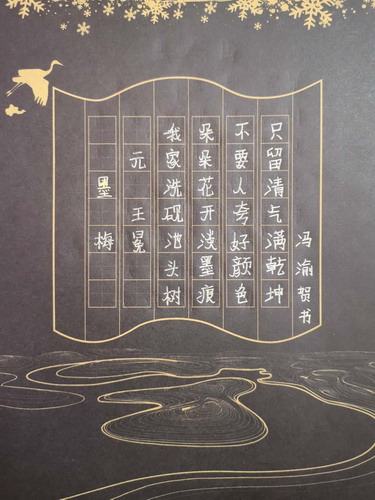 墨梅
元 王冕
我家洗砚池头树
朵朵花开浅墨痕
不要人夸好颜色
只留清气满乾坤
冯渝贺书